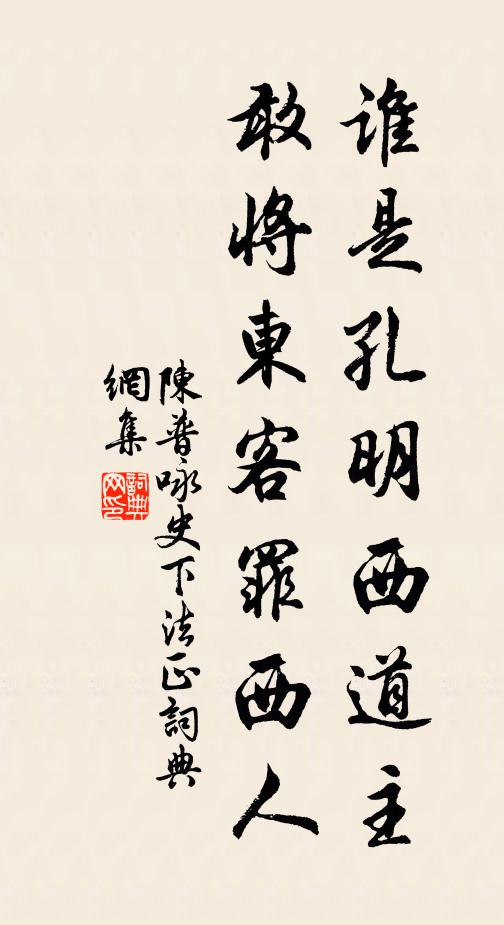 誰是孔明西道主
敢將東客罪西人
陳普咏史下法正詞典
網集
詞典
网印